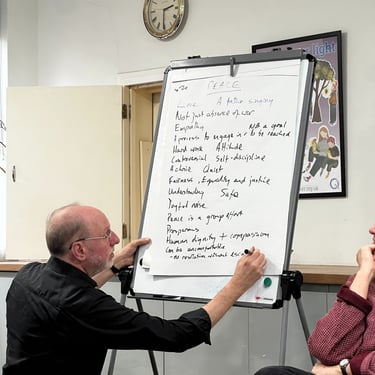 PEACE
Love A native singing
Not just absence of war
Empathy Not a goal
A process to engage in to be reached
Hard work Attitude
Controversial Self-discipline
Active Quiet
Fairness, Equality and justice
Understanding Safe
Joyful noise
Peace is a group effort
Prosperous
Human dignity + compassion
Can be uncomfortable
- no revolution without
light